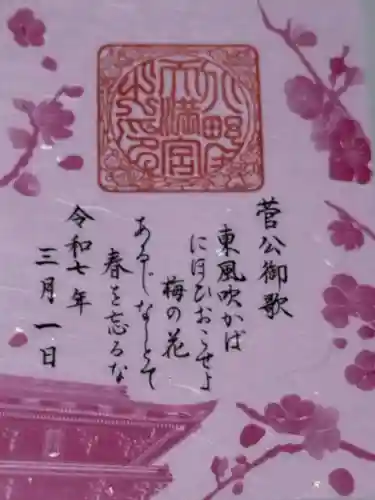 天満宮
菅公御歌
東風吹かば
にほひおこせよ
梅の花
あるじなしとて
春を忘るな
令和七年
三月一日